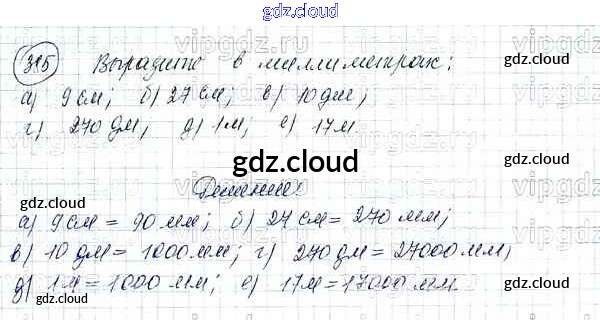 gdz.cloud
315 Выразите в миллиметрах:
а) 9 см; б) 27 см; в) 10 дм;
г) 270 дм; д) 1 м; е) 17 м.
gdz.cloud
gdz.cloud
gdz.cloud
Решение:
gdz.cloud
а) 9 см = 90 мм; б) 27 см = 270 мм;
в) 10 дм = 1000 мм; г) 270 дм = 27000 мм;
д) 1 м = 1000 мм; е) 17 м = 17000 мм.
gdz.cloud
gdz.cloud